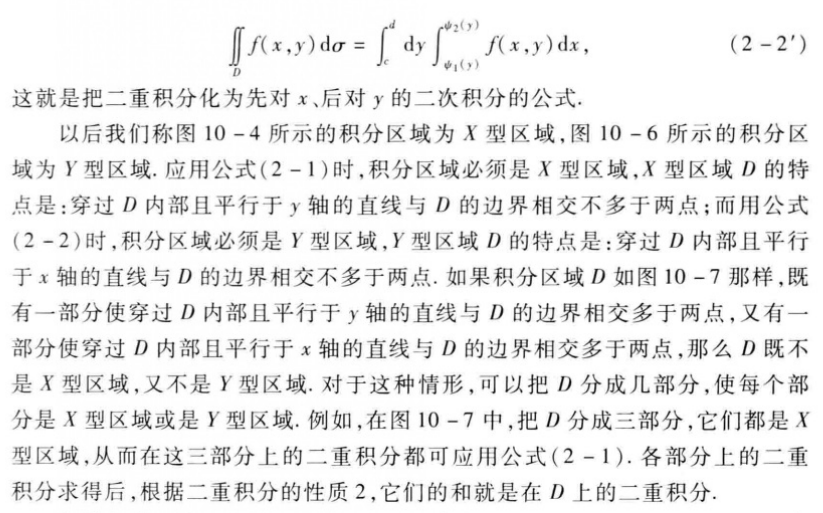 ∬_D f(x,y)dσ = ∫_c^d dy ∫_{ψ₁(y)}^{ψ₂(y)} f(x,y)dx, (2-2′)
这就是把二重积分化为先对 x、后对 y 的二次积分的公式.
以后我们称图 10-4 所示的积分区域为 X 型区域,图 10-6 所示的积分区
域为 Y 型区域. 应用公式(2-1)时,积分区域必须是 X 型区域,X 型区域 D 的特
点是:穿过 D 内部且平行于 y 轴的直线与 D 的边界相交不多于两点;而用公式
(2-2)时,积分区域必须是 Y 型区域,Y 型区域 D 的特点是:穿过 D 内部且平行
于 x 轴的直线与 D 的边界相交不多于两点. 如果积分区域 D 如图 10-7 那样,既
有一部分使穿过 D 内部且平行于 y 轴的直线与 D 的边界相交多于两点,又有一
部分使穿过 D 内部且平行于 x 轴的直线与 D 的边界相交多于两点,那么 D 既不
是 X 型区域,又不是 Y 型区域. 对于这种情形,可以把 D 分成几部分,使每个部
分是 X 型区域或是 Y 型区域. 例如,在图 10-7 中,把 D 分成三部分,它们都是 X
型区域,从而在这三部分上的二重积分都可应用公式(2-1). 各部分上的二重
积分求得后,根据二重积分的性质 2,它们的和就是在 D 上的二重积分.